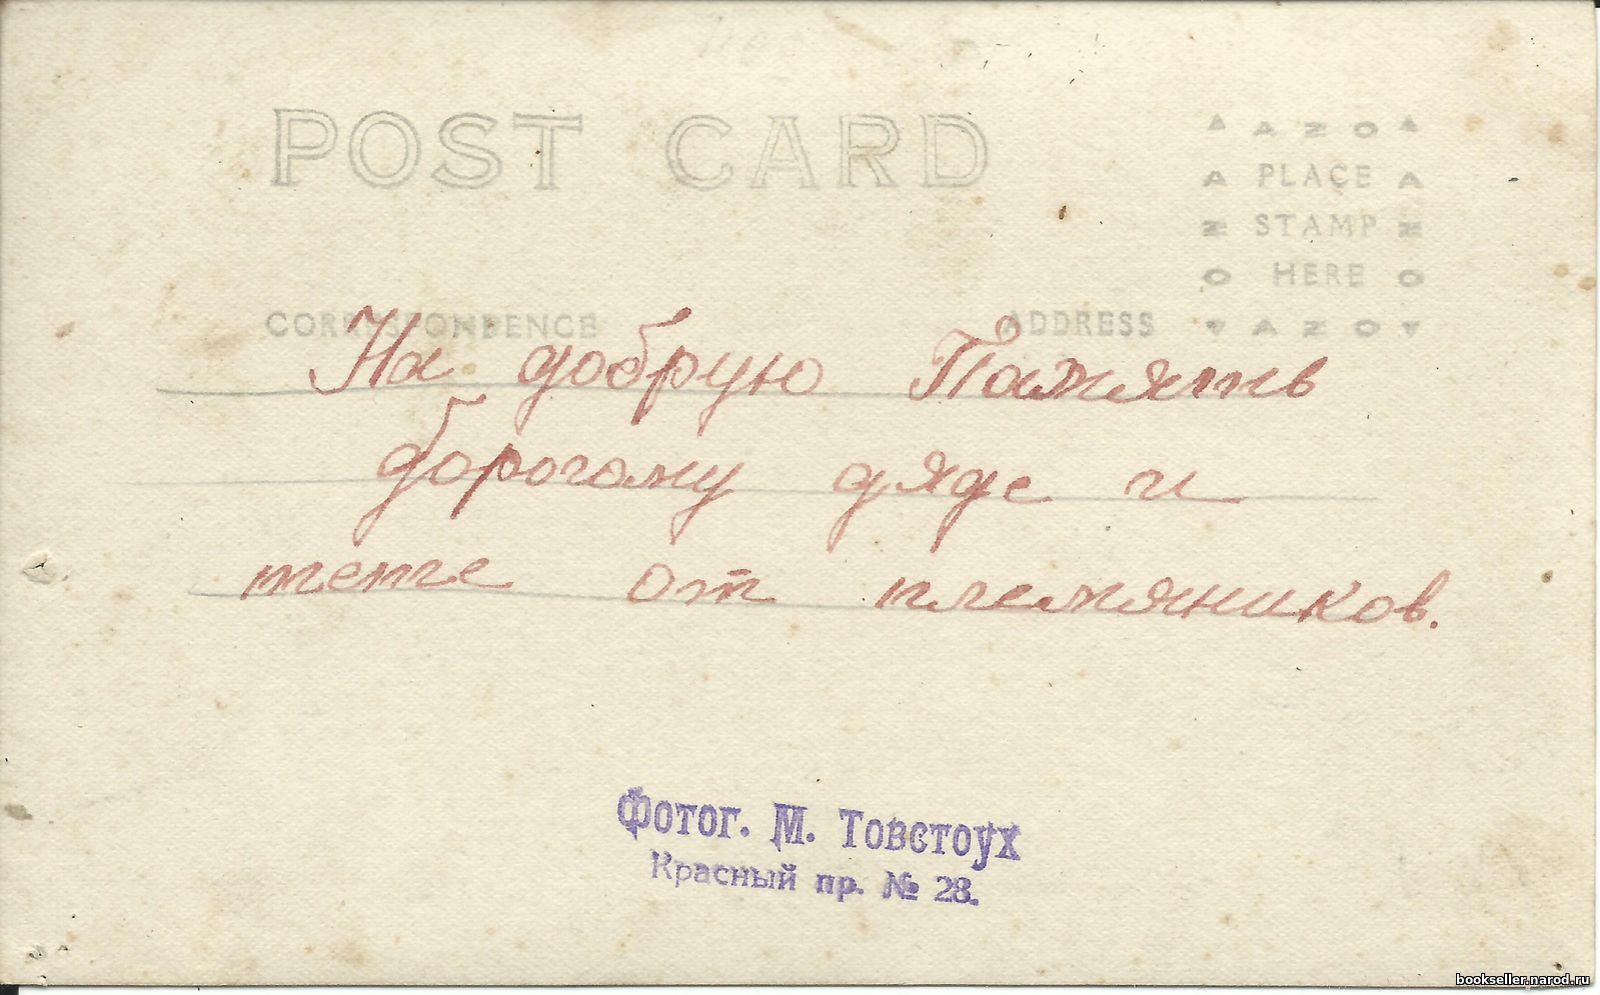 POST CARD
▲ A Z O ▲
A PLACE A
Z STAMP Z
O HERE O
▼ A Z O ▼
CORRESPONDENCE ADDRESS
На добрую Память
дорогому дяде и
тете от племяников.
Фотог. М. Товстоух
Красный пр. № 28.
bookseller.narod.ru